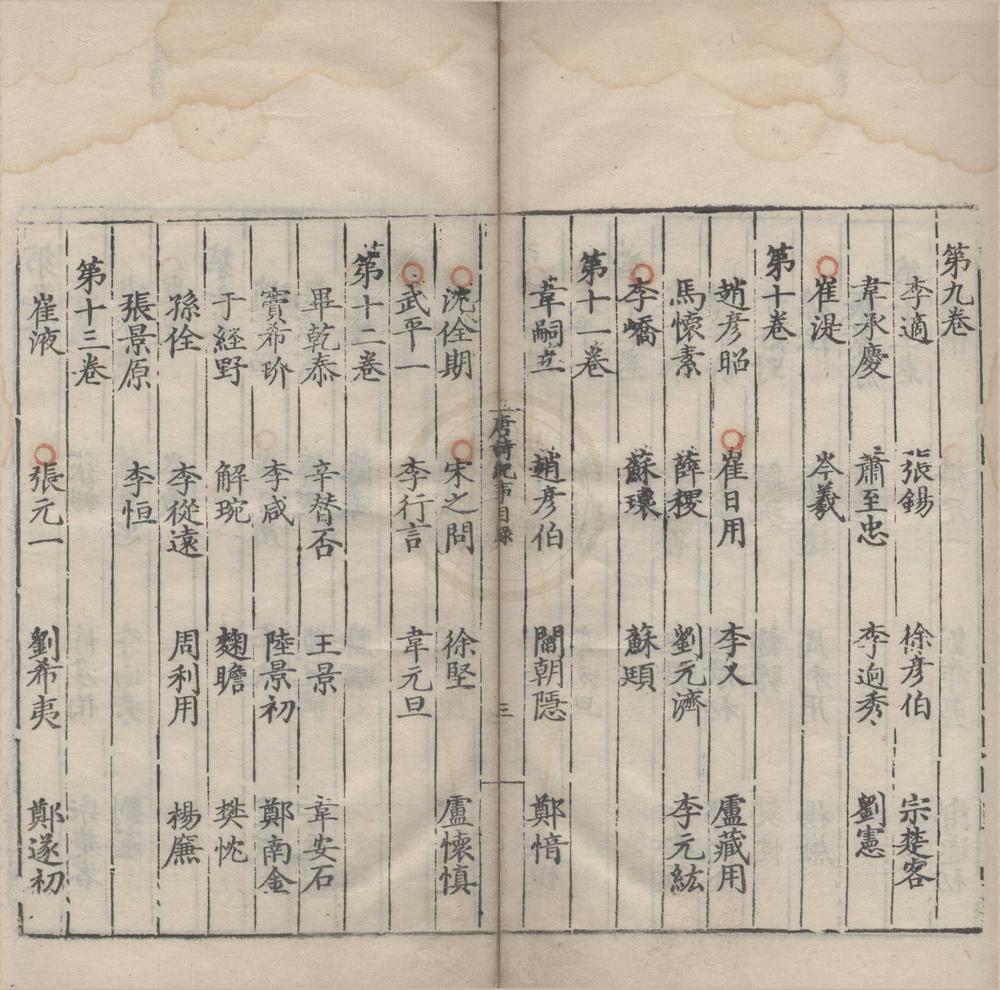 第九卷
李適 張錫 徐彥伯 宗楚客
韋承慶 蕭至忠 李迥秀 劉憲
崔湜 岑羲
第十卷
趙彥昭 崔日用 李乂 盧藏用
馬懷素 薛稷 劉元濟 李元紘
李嶠 蘇瓌 蘇頲
第十一卷
韋嗣立 趙彥伯 閻朝隱 鄭愔
唐詩紀事目錄 三
沈佺期 宋之問 徐堅 盧懷慎
武平一 李行言 韋元旦
第十二卷
畢乾泰 辛替否 王景 韋安石
竇希玠 李咸 陸景初 鄭南金
于經野 解琬 麴瞻 樊忱
孫佺 李從遠 周利用 楊廉
張景原 李恒
第十三卷
崔液 張元一 劉希夷 鄭遂初